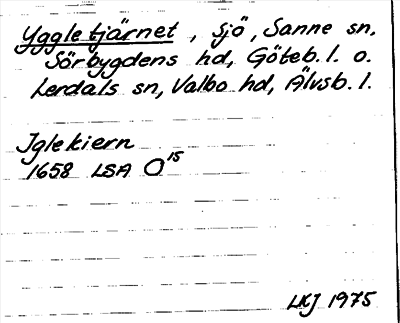 Yggletjärnet, Sjö, Sanne sn,
Sörbygdens hd, Göteb. l. o.
Lerdals sn, Valbo hd, Älvsb. l.
Iglekiern
1658 LSA O15
LKJ 1975